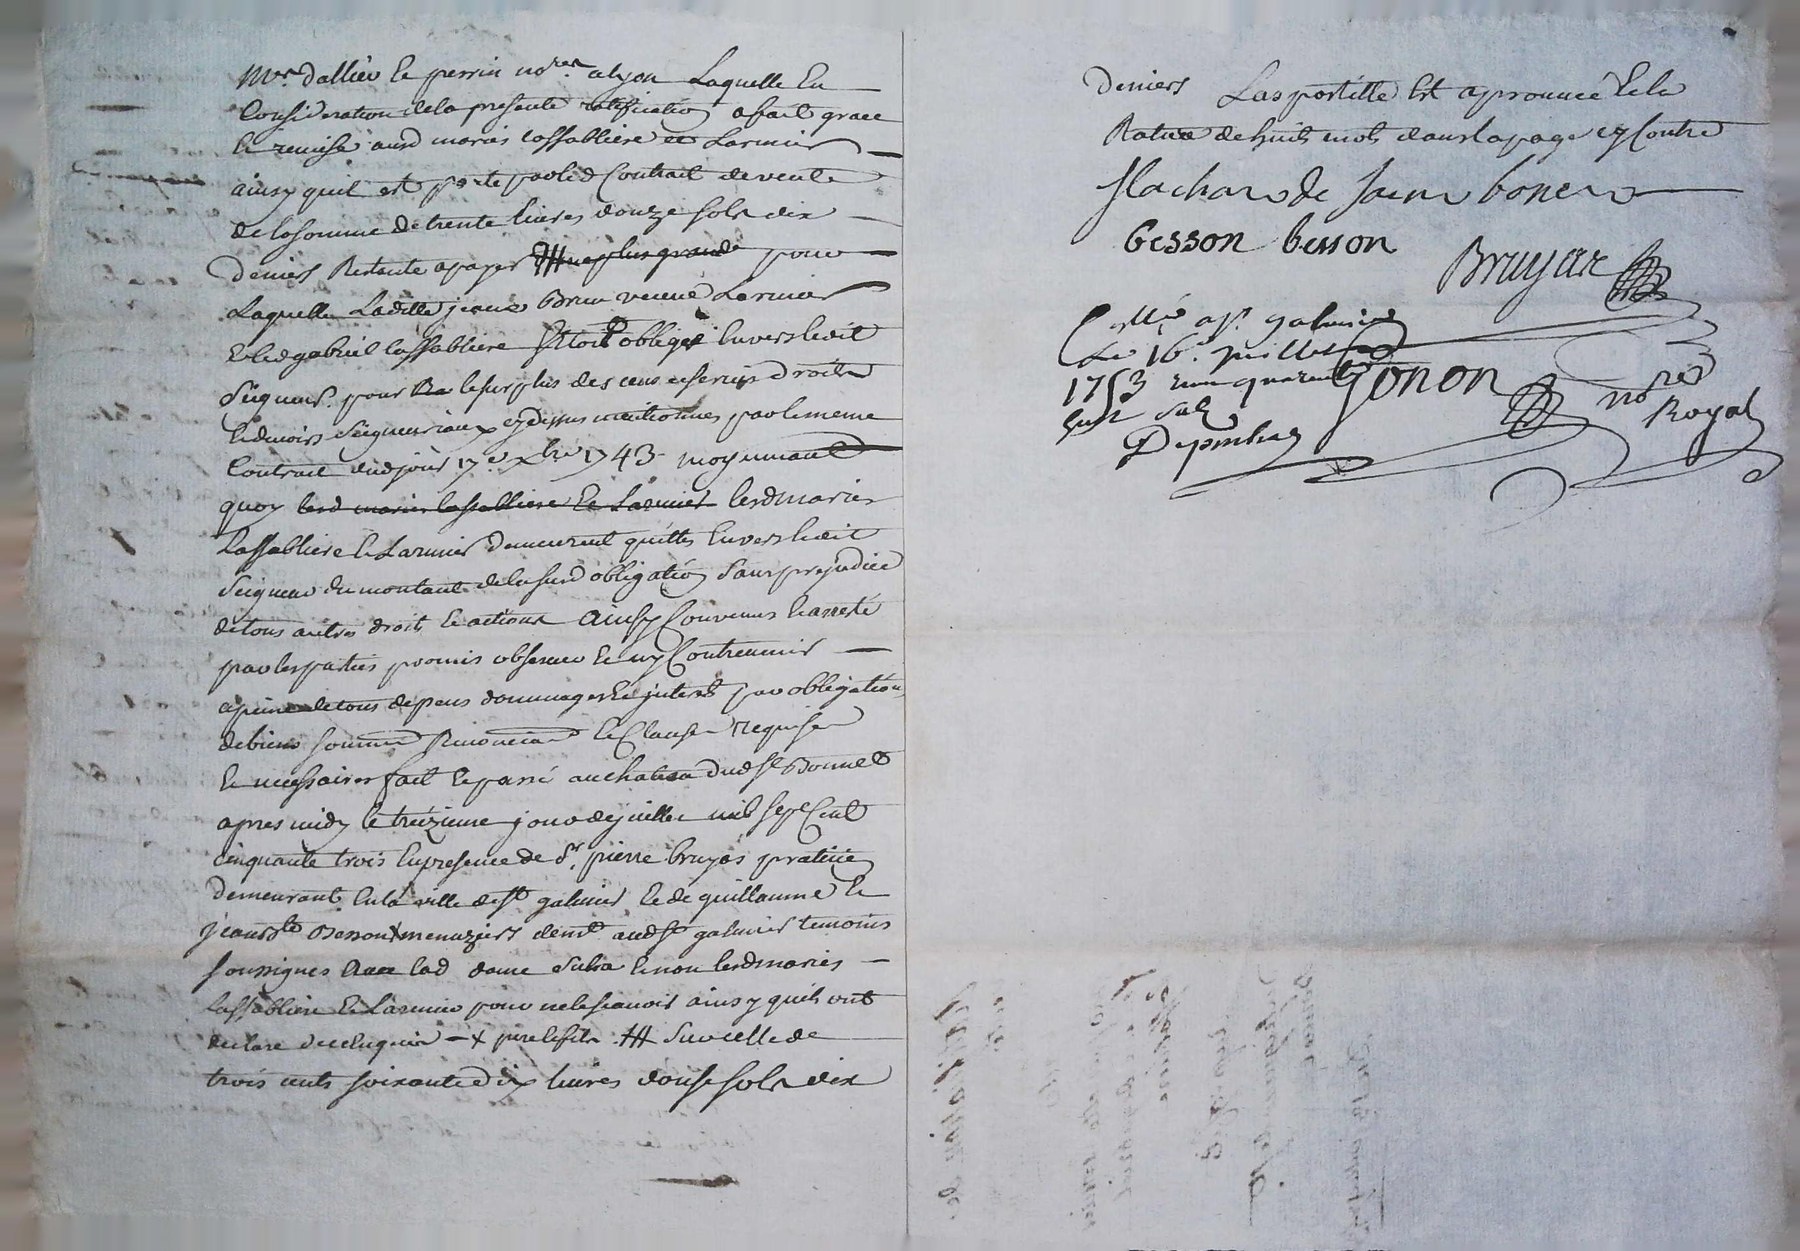 Mrs dallier Et perrin nores a lyon Laquelle En
Consideration de la presente ratification a fait grace
Et remise ausd mariés Lassabliere et Larmier
ainsy quil est porté par led Contrat de vente
de la somme de trente livres douze sols dix
deniers Restante a payer pour
Laquelle Laditte jeanne Brun veuve Larmier
Et led gabriel Lassabliere obligés Envers ledit
Seigneur pour le surplus des cens et servis droits
Et devoirs Seigneuriaux cy dessus mentionnés par le meme
Contrat dud jour 17e xbre 1743 moyennant
quoy lesd mariés Lassabliere Et Larmier lesd mariés
Lassabliere Et Larmier demeurent quittes Envers ledit
Seigneur du montant de la susd obligation Sans prejudice
de tous autres droits Et actions Ainsy Convenus Et arreté
par les parties promis observer Et ny Contrevenir
a peine de tous depens dommages Et interets par obligation
de biens Et Clauses requises
Et necessaires fait Et passé au chateau dud St Bonnet
apres midy le treizieme jour de juillet mil sept Cent
cinquante trois En presence de Sr pierre bruyas praticien
demeurant En la ville de St galmier Et de guillaume Et
Besson x menuziers demt aud St galmier temoins
soussignés Avec lad dame Et non lesd mariés
Lassabliere Et Larmier pour ne le scavoir ainsy quils ont
declaré de ce Enquis x pere Et fils Sur celle de
trois cents soixante dix livres douse sols dix
deniers L'apostille Est aprouvée Et la
Rature de huit mots dans la page cy Contre
flachat de
besson besson
Bruyas
Collé a St galmier
Le 16e juillet
1753 recu quarante
huit sols
Gonon
nore
Royal